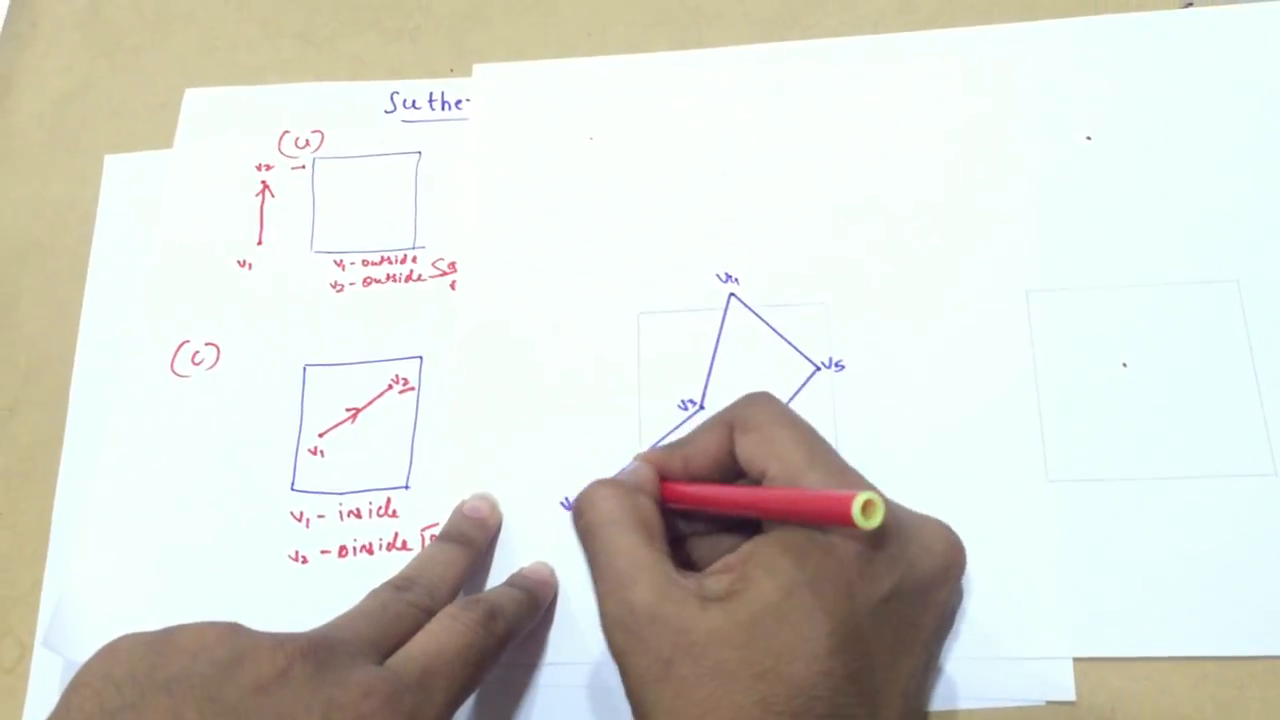 Suthe
(a)
v2
v1
v1 - outside
v2 - outside
(c)
v2
v1
v1 - inside
v2 - oinside
v4
v5
v3